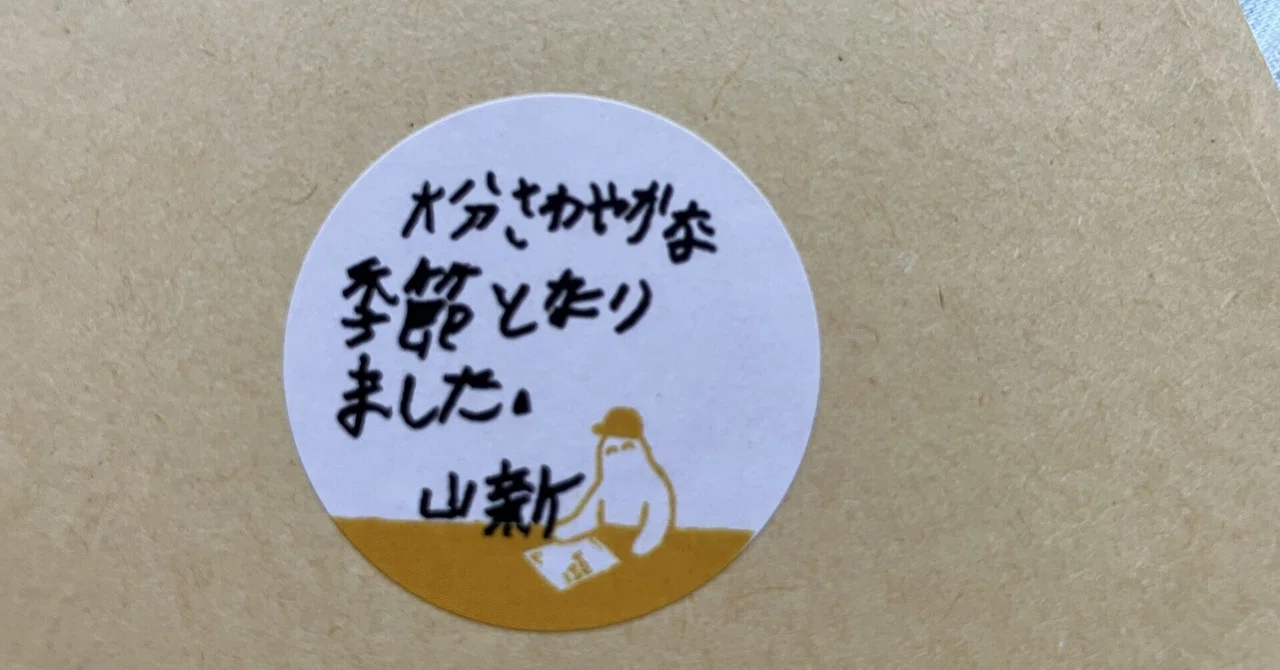 大分さわやかな
季節となり
ました。
山新